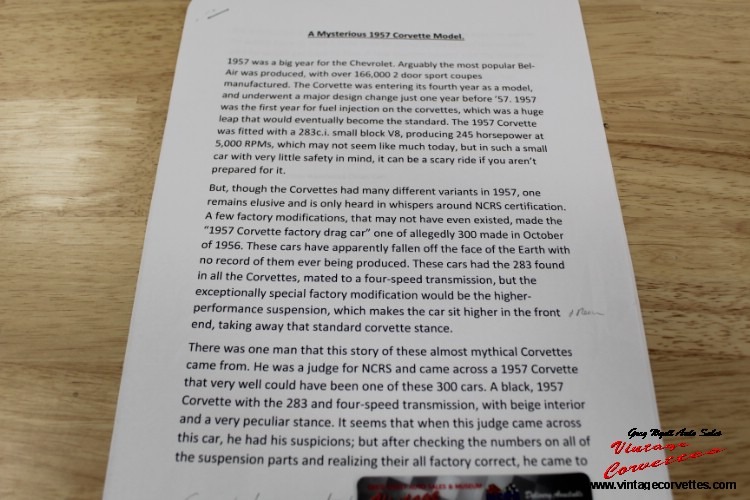 A Mysterious 1957 Corvette Model.
1957 was a big year for the Chevrolet. Arguably the most popular Bel-
Air was produced, with over 166,000 2 door sport coupes
manufactured. The Corvette was entering its fourth year as a model,
and underwent a major design change just one year before '57. 1957
was the first year for fuel injection on the corvettes, which was a huge
leap that would eventually become the standard. The 1957 Corvette
was fitted with a 283c.i. small block V8, producing 245 horsepower at
5,000 RPMs, which may not seem like much today, but in such a small
car with very little safety in mind, it can be a scary ride if you aren't
prepared for it.
But, though the Corvettes had many different variants in 1957, one
remains elusive and is only heard in whispers around NCRS certification.
A few factory modifications, that may not have even existed, made the
"1957 Corvette factory drag car" one of allegedly 300 made in October
of 1956. These cars have apparently fallen off the face of the Earth with
no record of them ever being produced. These cars had the 283 found
in all the Corvettes, mated to a four-speed transmission, but the
exceptionally special factory modification would be the higher-
performance suspension, which makes the car sit higher in the front
end, taking away that standard corvette stance.
There was one man that this story of these almost mythical Corvettes
came from. He was a judge for NCRS and came across a 1957 Corvette
that very well could have been one of these 300 cars. A black, 1957
Corvette with the 283 and four-speed transmission, with beige interior
and a very peculiar stance. It seems that when this judge came across
this car, he had his suspicions; but after checking the numbers on all of
the suspension parts and realizing their all factory correct, he came to
Greg Wyatt Auto Sales
Vintage
Corvettes
www.vintagecorvettes.com